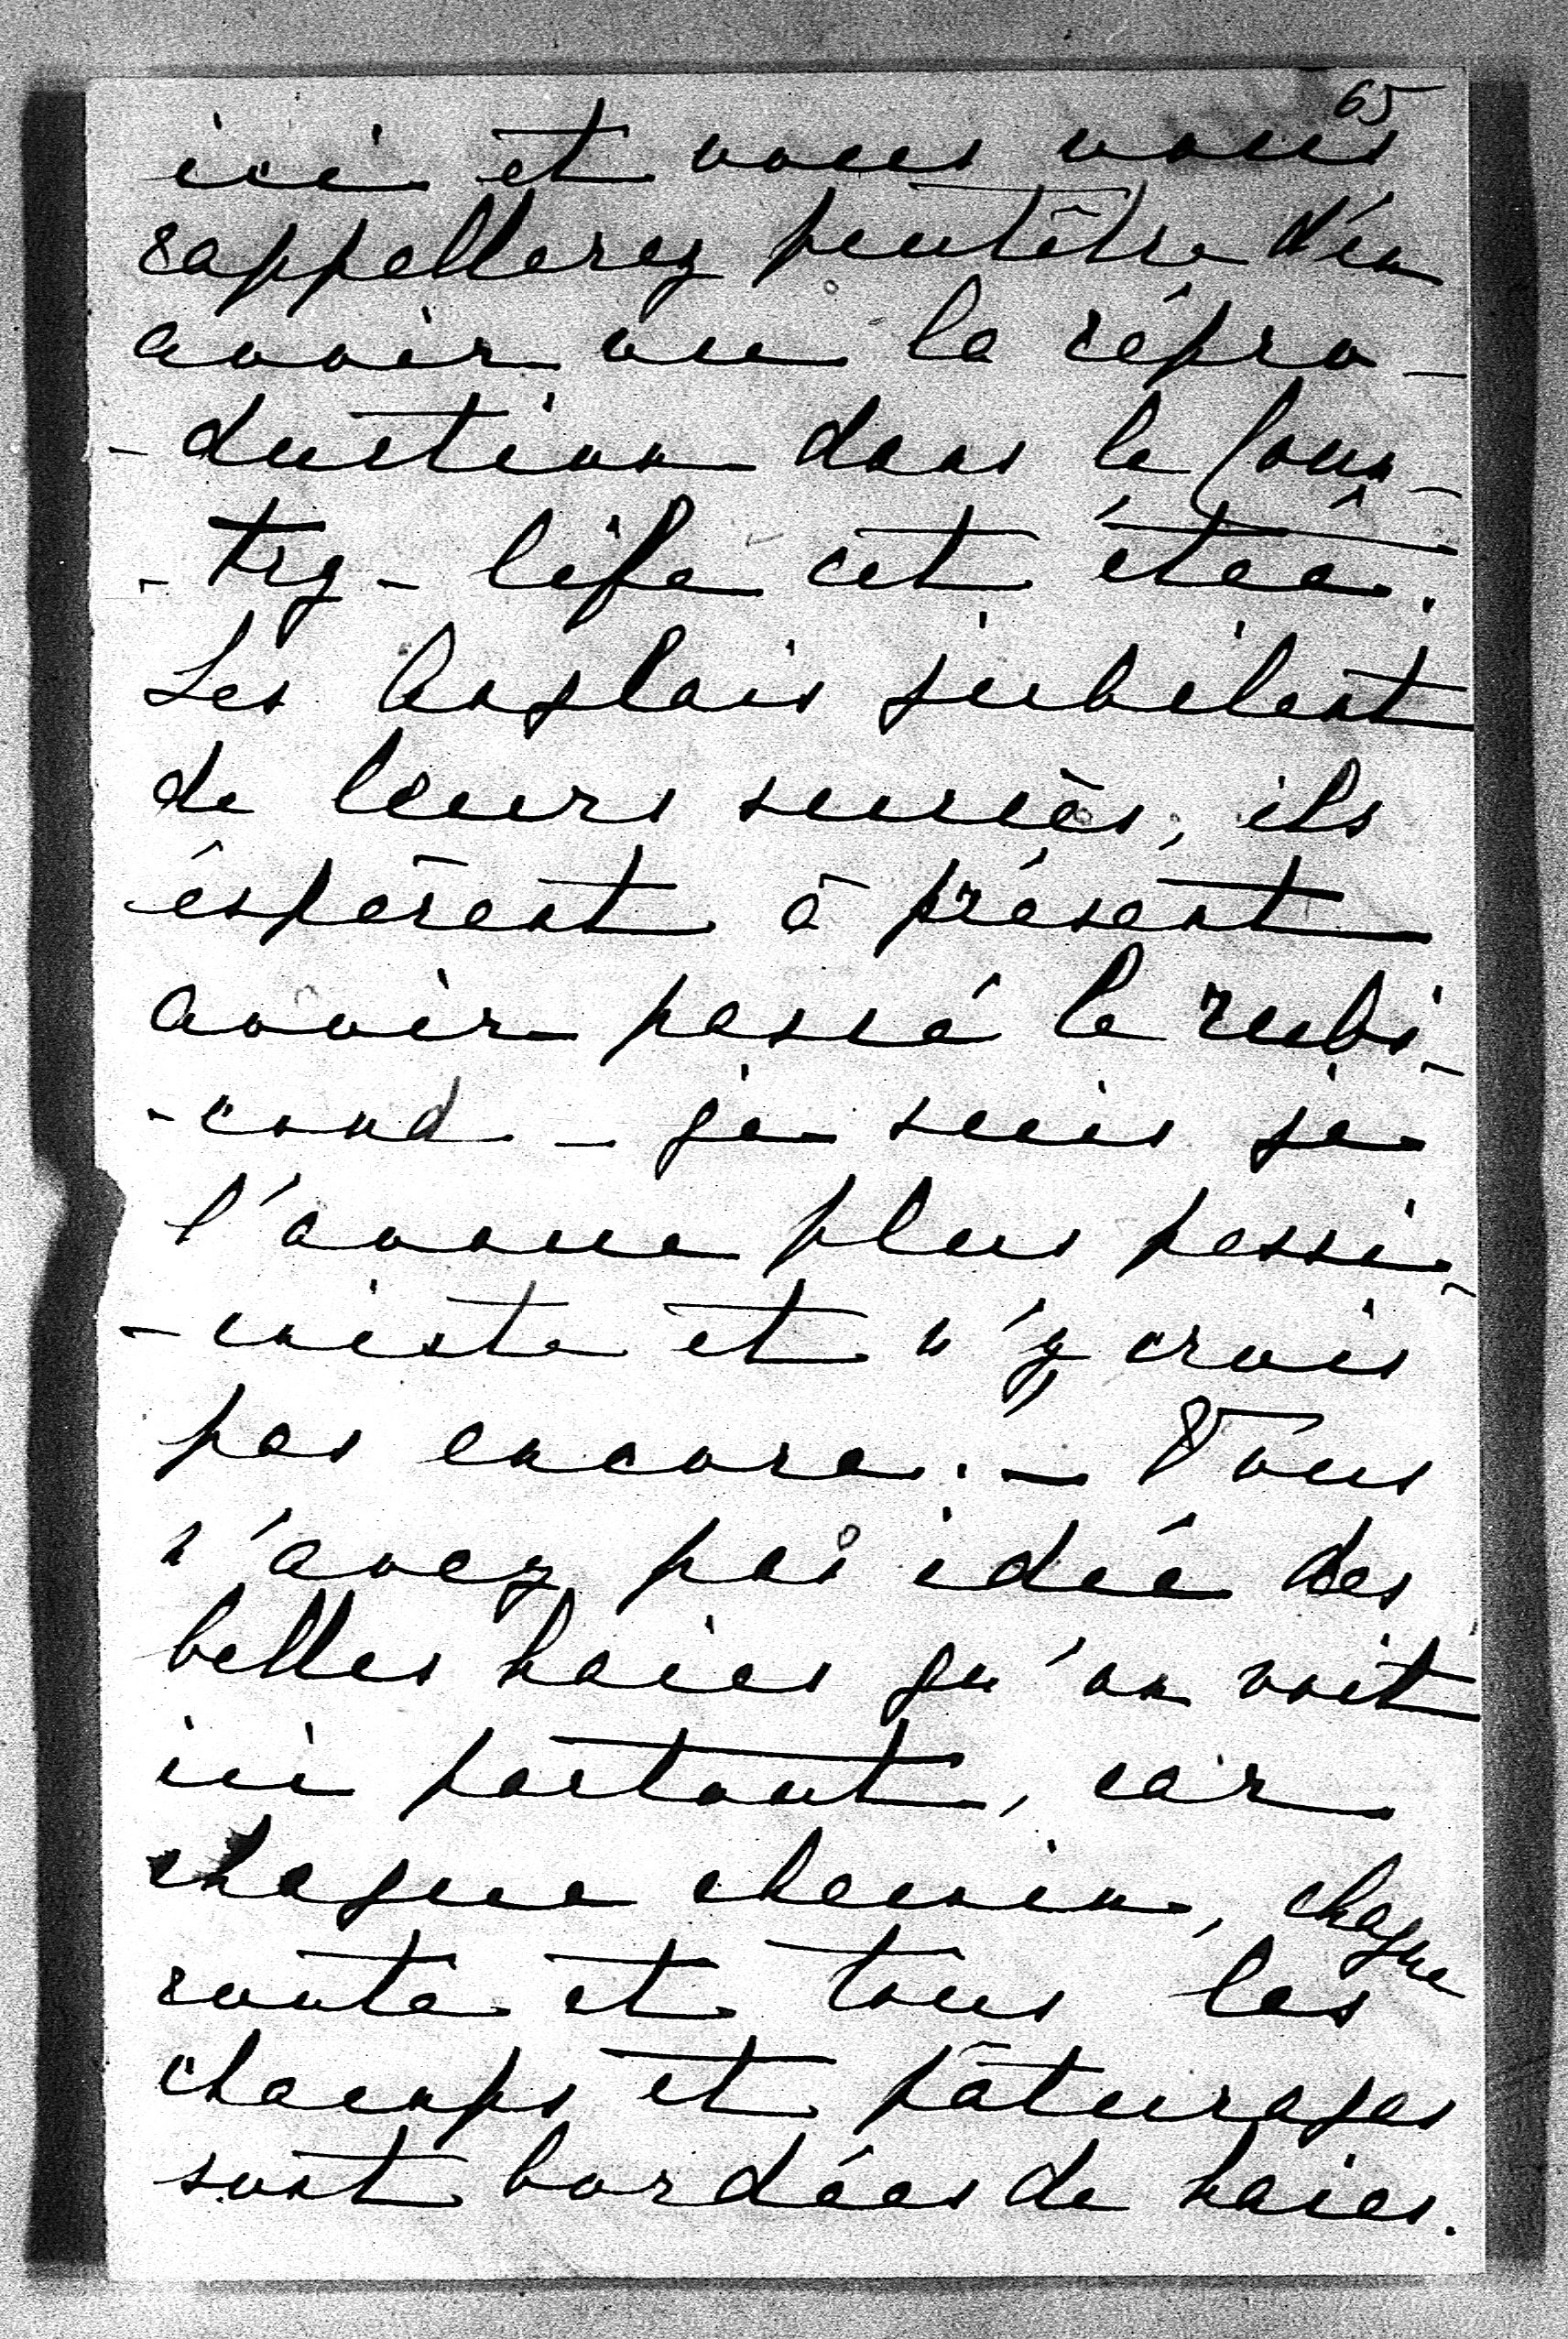 65
ici et vous vous
rappellerez peutêtre d'en
avoir vu la répro-
-duction dans le Coun-
-try-life cet été.
Les Anglais jubilent
de leurs succès, ils
éspèrent à présent
avoir passé le rubi-
-cond - je suis je
l'avoue plus pessi-
-miste et n'y crois
pas encore. - Vous
n'avez pas idée des
belles haies qu'on voit
ici partout, car
chaque chemin, chaque
route et tous les
champs et pâturages
sont bordées de haies.